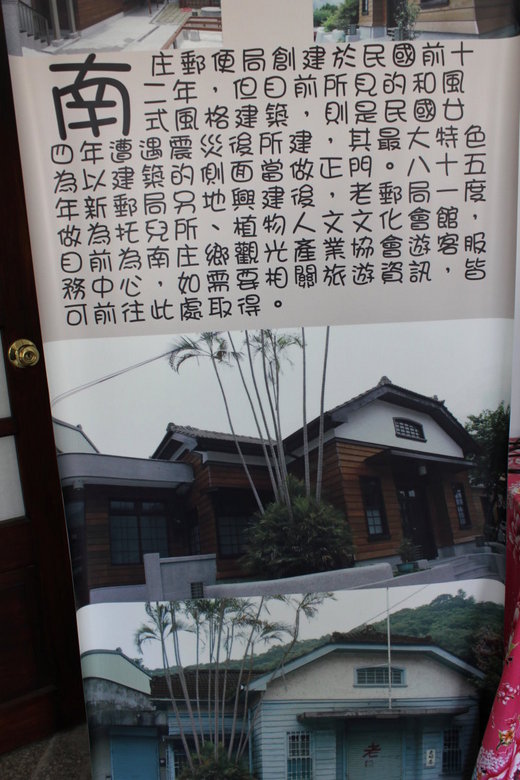 南庄郵便局創建於民國前十
二年，但目前所見的和風
式風格建築，則是民國廿
四年遭遇震災後所建，其最大特色
為以建築的側面當做正門。八十五
年新郵局另地興建後，老郵局一度
做為托兒所、植物人文文化會館，
目前為南庄鄉觀光產業協會遊客服
務中心，如需要相關旅遊資訊，皆
可前往此處取得。
老